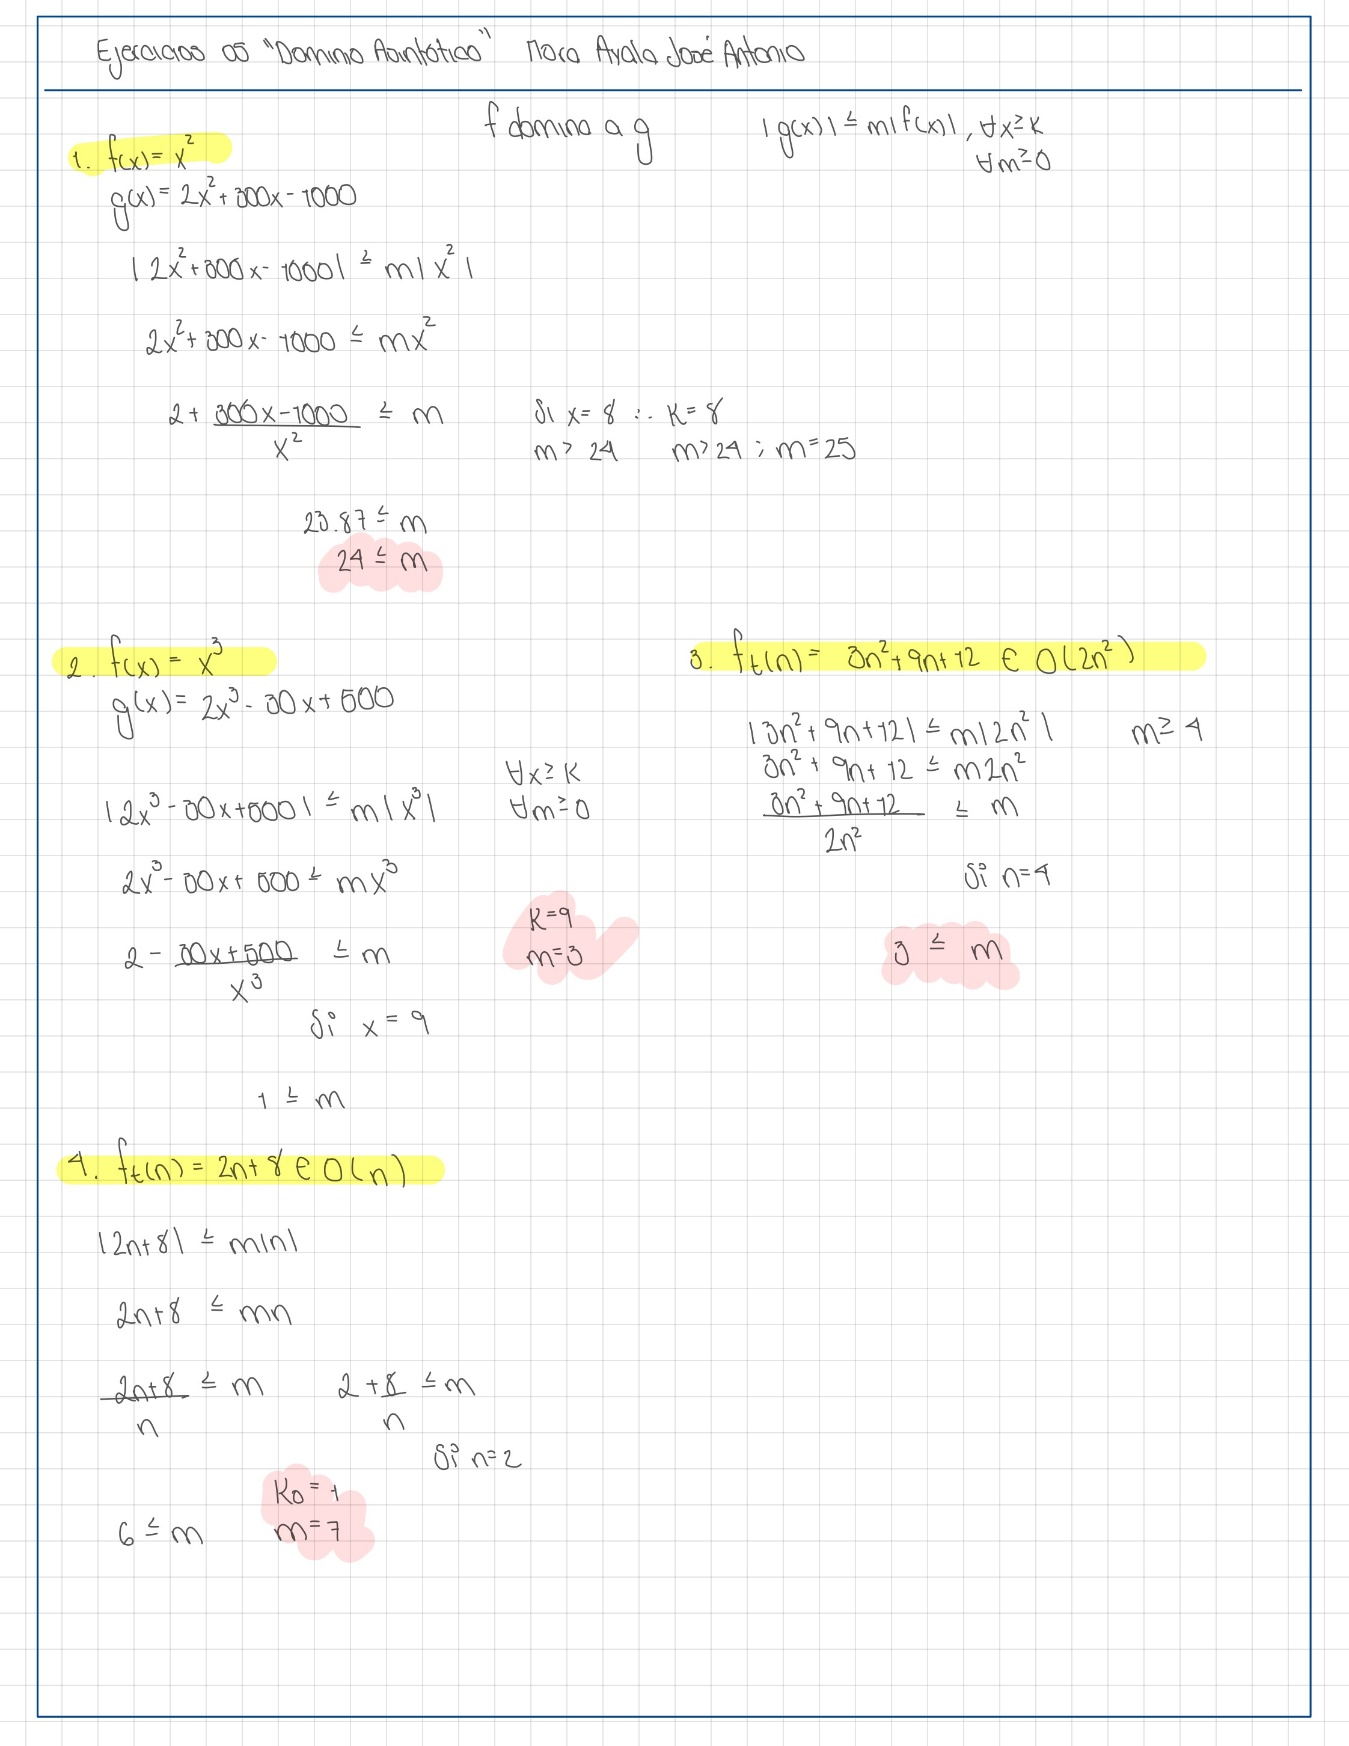 Ejercicios 05 "Domino Asintótico" Mora Ayala José Antonio
f domina a g |g(x)| ≤ m|f(x)|, ∀x≥K
∀m≥0
1. f(x) = x²
g(x) = 2x² + 300x - 1000
|2x² + 300x - 1000| ≤ m|x²|
2x² + 300x - 1000 ≤ mx²
2 + (300x - 1000)/x² ≤ m
Si x = 8 ∴ K = 8
m > 24 m > 24 ; m = 25
23.87 ≤ m
24 ≤ m
2. f(x) = x³
g(x) = 2x³ - 30x + 500
∀x≥K
∀m≥0
|2x³ - 30x + 500| ≤ m|x³|
2x³ - 30x + 500 ≤ mx³
2 - (30x + 500)/x³ ≤ m
K = 9
m = 3
Si x = 9
1 ≤ m
3. ft(n) = 3n² + 9n + 12 ∈ O(2n²)
|3n² + 9n + 12| ≤ m|2n²| m ≥ 4
3n² + 9n + 12 ≤ m2n²
(3n² + 9n + 12)/2n² ≤ m
Si n = 4
3 ≤ m
4. ft(n) = 2n + 8 ∈ O(n)
|2n + 8| ≤ m|n|
2n + 8 ≤ mn
(2n + 8)/n ≤ m 2 + 8/n ≤ m
Si n = 2
K0 = 1
6 ≤ m m = 7